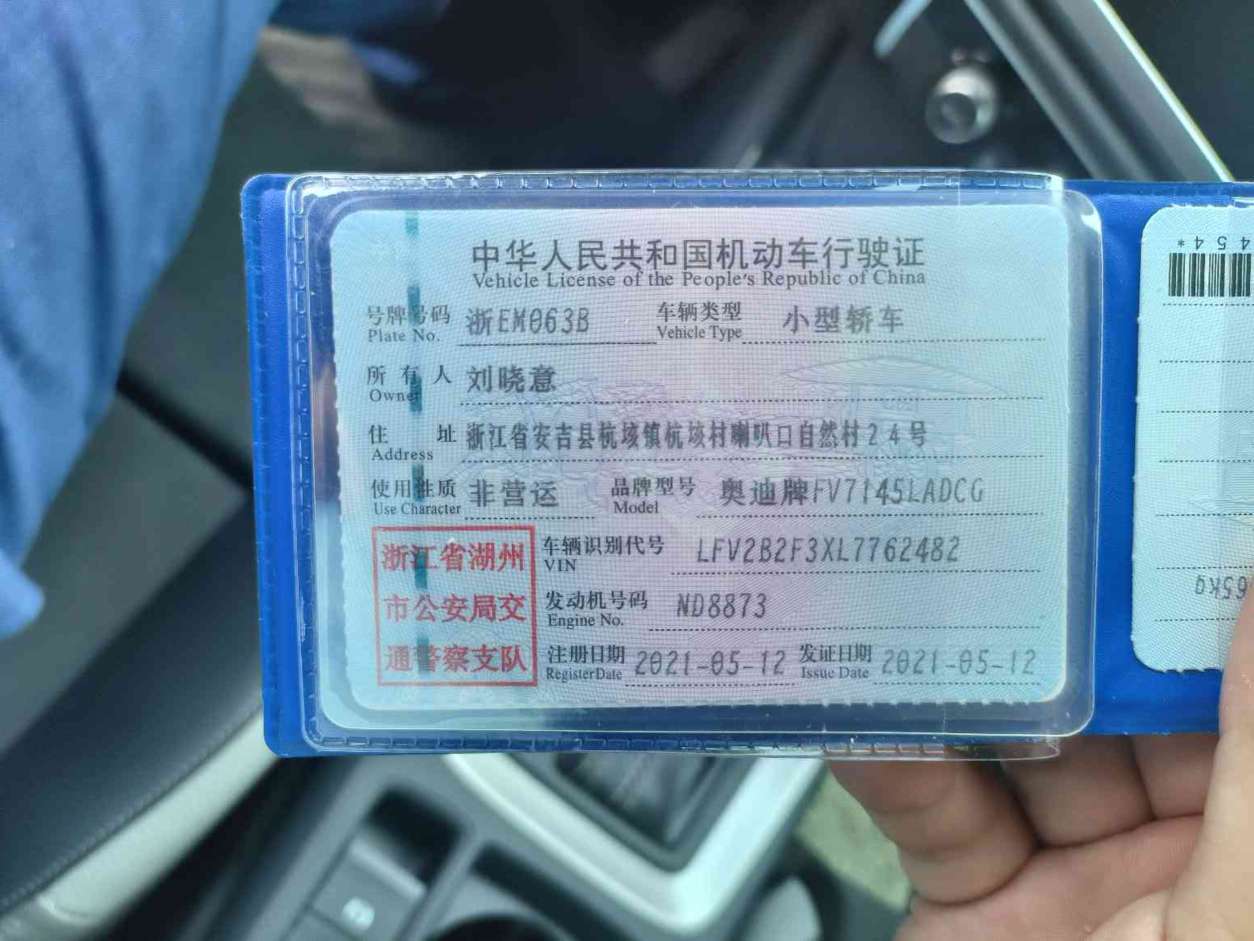 中华人民共和国机动车行驶证
Vehicle License of the People's Republic of China
号牌号码 浙EM063B 车辆类型 小型轿车
Plate No. Vehicle Type
所有人 刘晓意
Owner
住址 浙江省安吉县杭垓镇杭垓村喇叭口自然村24号
Address
使用性质 非营运 品牌型号 奥迪牌FV7145LADCG
Use Character Model
浙江省湖州
市公安局交
通警察支队
车辆识别代号 LFV2B2F3XL7762482
VIN
发动机号码 ND8873
Engine No.
注册日期 2021-05-12 发证日期 2021-05-12
Register Date Issue Date
454*
65kg